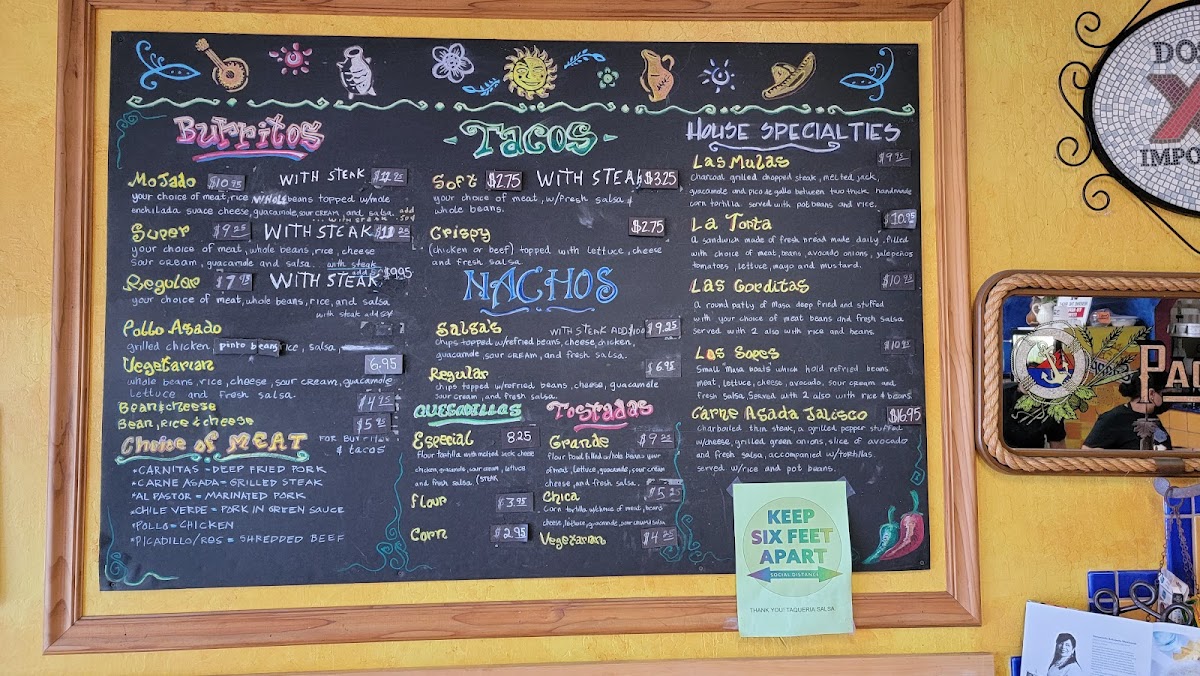 Burritos
Mojado $10.95 WITH STEAK
your choice of meat, rice whole beans topped w/mole
enchilada suace cheese, guacamole, sour cream, and salsa. add
with steak 50¢
Super $9.25 WITH STEAK
your choice of meat, whole beans, rice, cheese
sour cream, guacamole and salsa. with steak
Regular $7.95 WITH STEAK $9.95
your choice of meat, whole beans, rice, and salsa
with steak add 50¢
Pollo Asado
grilled chicken, pinto beans, rice, salsa,
Vegetarian 6.95
whole beans, rice, cheese, sour cream, guacamole
lettuce and fresh salsa.
Bean & cheese
Bean, Rice & cheese
Choice of MEAT FOR BURRITOS
& TACOS
*CARNITAS = DEEP FRIED PORK
*CARNE ASADA = GRILLED STEAK
*AL PASTOR = MARINATED PORK
*CHILE VERDE = PORK IN GREEN SAUCE
*POLLO = CHICKEN
*PICADILLO/RES = SHREDDED BEEF
Tacos
Soft $2.75 WITH STEAK $3.25
your choice of meat, w/fresh salsa &
whole beans.
Crispy $2.75
(chicken or beef) topped with lettuce, cheese
and fresh salsa.
NACHOS
Salsa's WITH STEAK ADD $1.00 $9.25
chips topped w/refried beans, cheese, chicken,
guacamole, sour cream, and fresh salsa.
Regular $6.95
chips topped w/refried beans, cheese, guacamole
sour cream, and fresh salsa.
QUESADILLAS
Especial 8.25
flour tortilla with melted jack cheese
chicken, guacamole, sour cream, lettuce
and fresh salsa. (STEAK
Flour $3.95
Corn $2.95
Tostadas
Grande $9.25
flour bowl filled w/whole beans your
of meat, lettuce, guacamole, sour cream
cheese, and fresh salsa.
Chica $5.25
corn tortilla w/choice of meat, beans
cheese, lettuce, guacamole, sour cream and salsa
Vegetarian $4.25
HOUSE SPECIALTIES
Las Mulas $9.95
charcoal grilled chopped steak, melted jack,
guacamole and pico de gallo between two thick handmade
corn tortilla served with pot beans and rice.
La Torta $10.95
a sandwich made of fresh bread made daily, filled
with choice of meat, beans, avocado onions, jalepeños
tomatoes, lettuce, mayo and mustard.
Las Gorditas $10.95
a round patty of masa deep fried and stuffed
with your choice of meat beans and fresh salsa
served with 2 also with rice and beans.
Los Sopes $10.95
small masa boats which hold refried beans
meat, lettuce, cheese, avocado, sour cream and
fresh salsa. served with 2 also with rice & beans.
Carne Asada Jalisco $16.95
charboiled thin steak, a grilled pepper stuffed
w/cheese, grilled green onions, slice of avocado
and fresh salsa, accompanied w/tortillas.
served w/rice and pot beans.
KEEP
SIX FEET
APART
SOCIAL DISTANCE
THANK YOU! TAQUERIA SALSA
DO
X
IMPO
PA